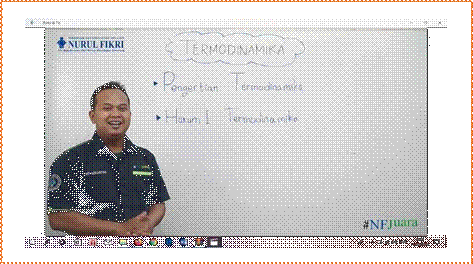 NURUL FIKRI
TERMODINAMIKA
Pengertian Termodinamika
Hukum I Termodinamika
#NFJuara